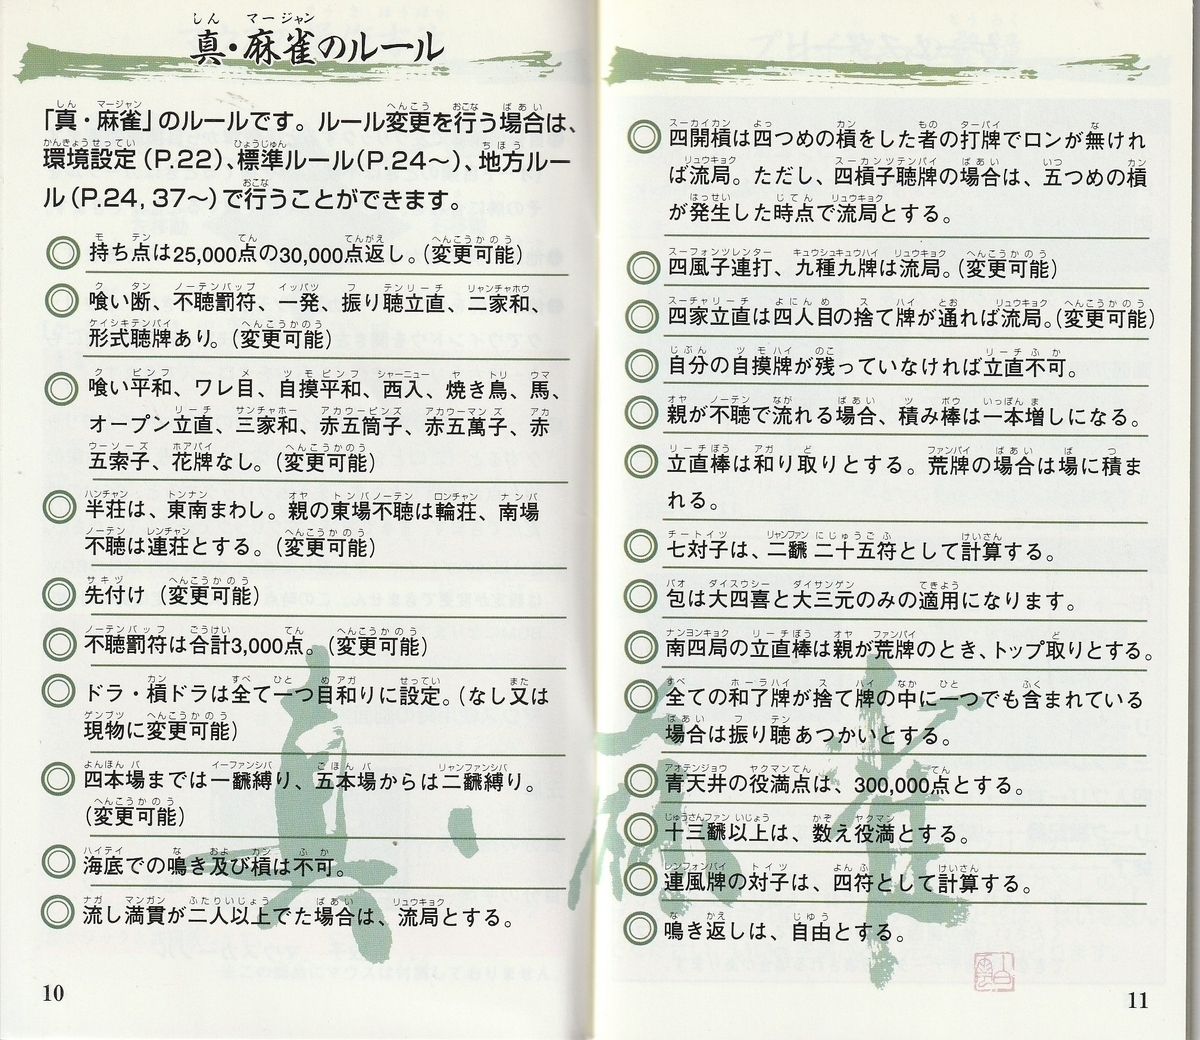 真・麻雀のルール
「真・麻雀」のルールです。ルール変更を行う場合は、
環境設定(P.22)、標準ルール(P.24〜)、地方ルー
ル(P.24, 37〜)で行うことができます。
◎持ち点は25,000点の30,000点返し。(変更可能)
◎喰い断、不聴罰符、一発、振り聴立直、二家和、
形式聴牌あり。(変更可能)
◎喰い平和、ワレ目、自摸平和、西入、焼き鳥、馬、
オープン立直、三家和、赤五筒子、赤五萬子、赤
五索子、花牌なし。(変更可能)
◎半荘は、東南まわし。親の東場不聴は輪荘、南場
不聴は連荘とする。(変更可能)
◎先付け(変更可能)
◎不聴罰符は合計3,000点。(変更可能)
◎ドラ・槓ドラは全て一つ目和りに設定。(なし又は
現物に変更可能)
◎四本場までは一飜縛り、五本場からは二飜縛り。
(変更可能)
◎海底での鳴き及び槓は不可。
◎流し満貫が二人以上でた場合は、流局とする。
10
◎四開槓は四つめの槓をした者の打牌でロンが無けれ
ば流局。ただし、四槓子聴牌の場合は、五つめの槓
が発生した時点で流局とする。
◎四風子連打、九種九牌は流局。(変更可能)
◎四家立直は四人目の捨て牌が通れば流局。(変更可能)
◎自分の自摸牌が残っていなければ立直不可。
◎親が不聴で流れる場合、積み棒は一本増しになる。
◎立直棒は和り取りとする。荒牌の場合は場に積ま
れる。
◎七対子は、二飜 二十五符として計算する。
◎包は大四喜と大三元のみの適用になります。
◎南四局の立直棒は親が荒牌のとき、トップ取りとする。
◎全ての和了牌が捨て牌の中に一つでも含まれている
場合は振り聴あつかいとする。
◎青天井の役満点は、300,000点とする。
◎十三飜以上は、数え役満とする。
◎連風牌の対子は、四符として計算する。
◎鳴き返しは、自由とする。
11